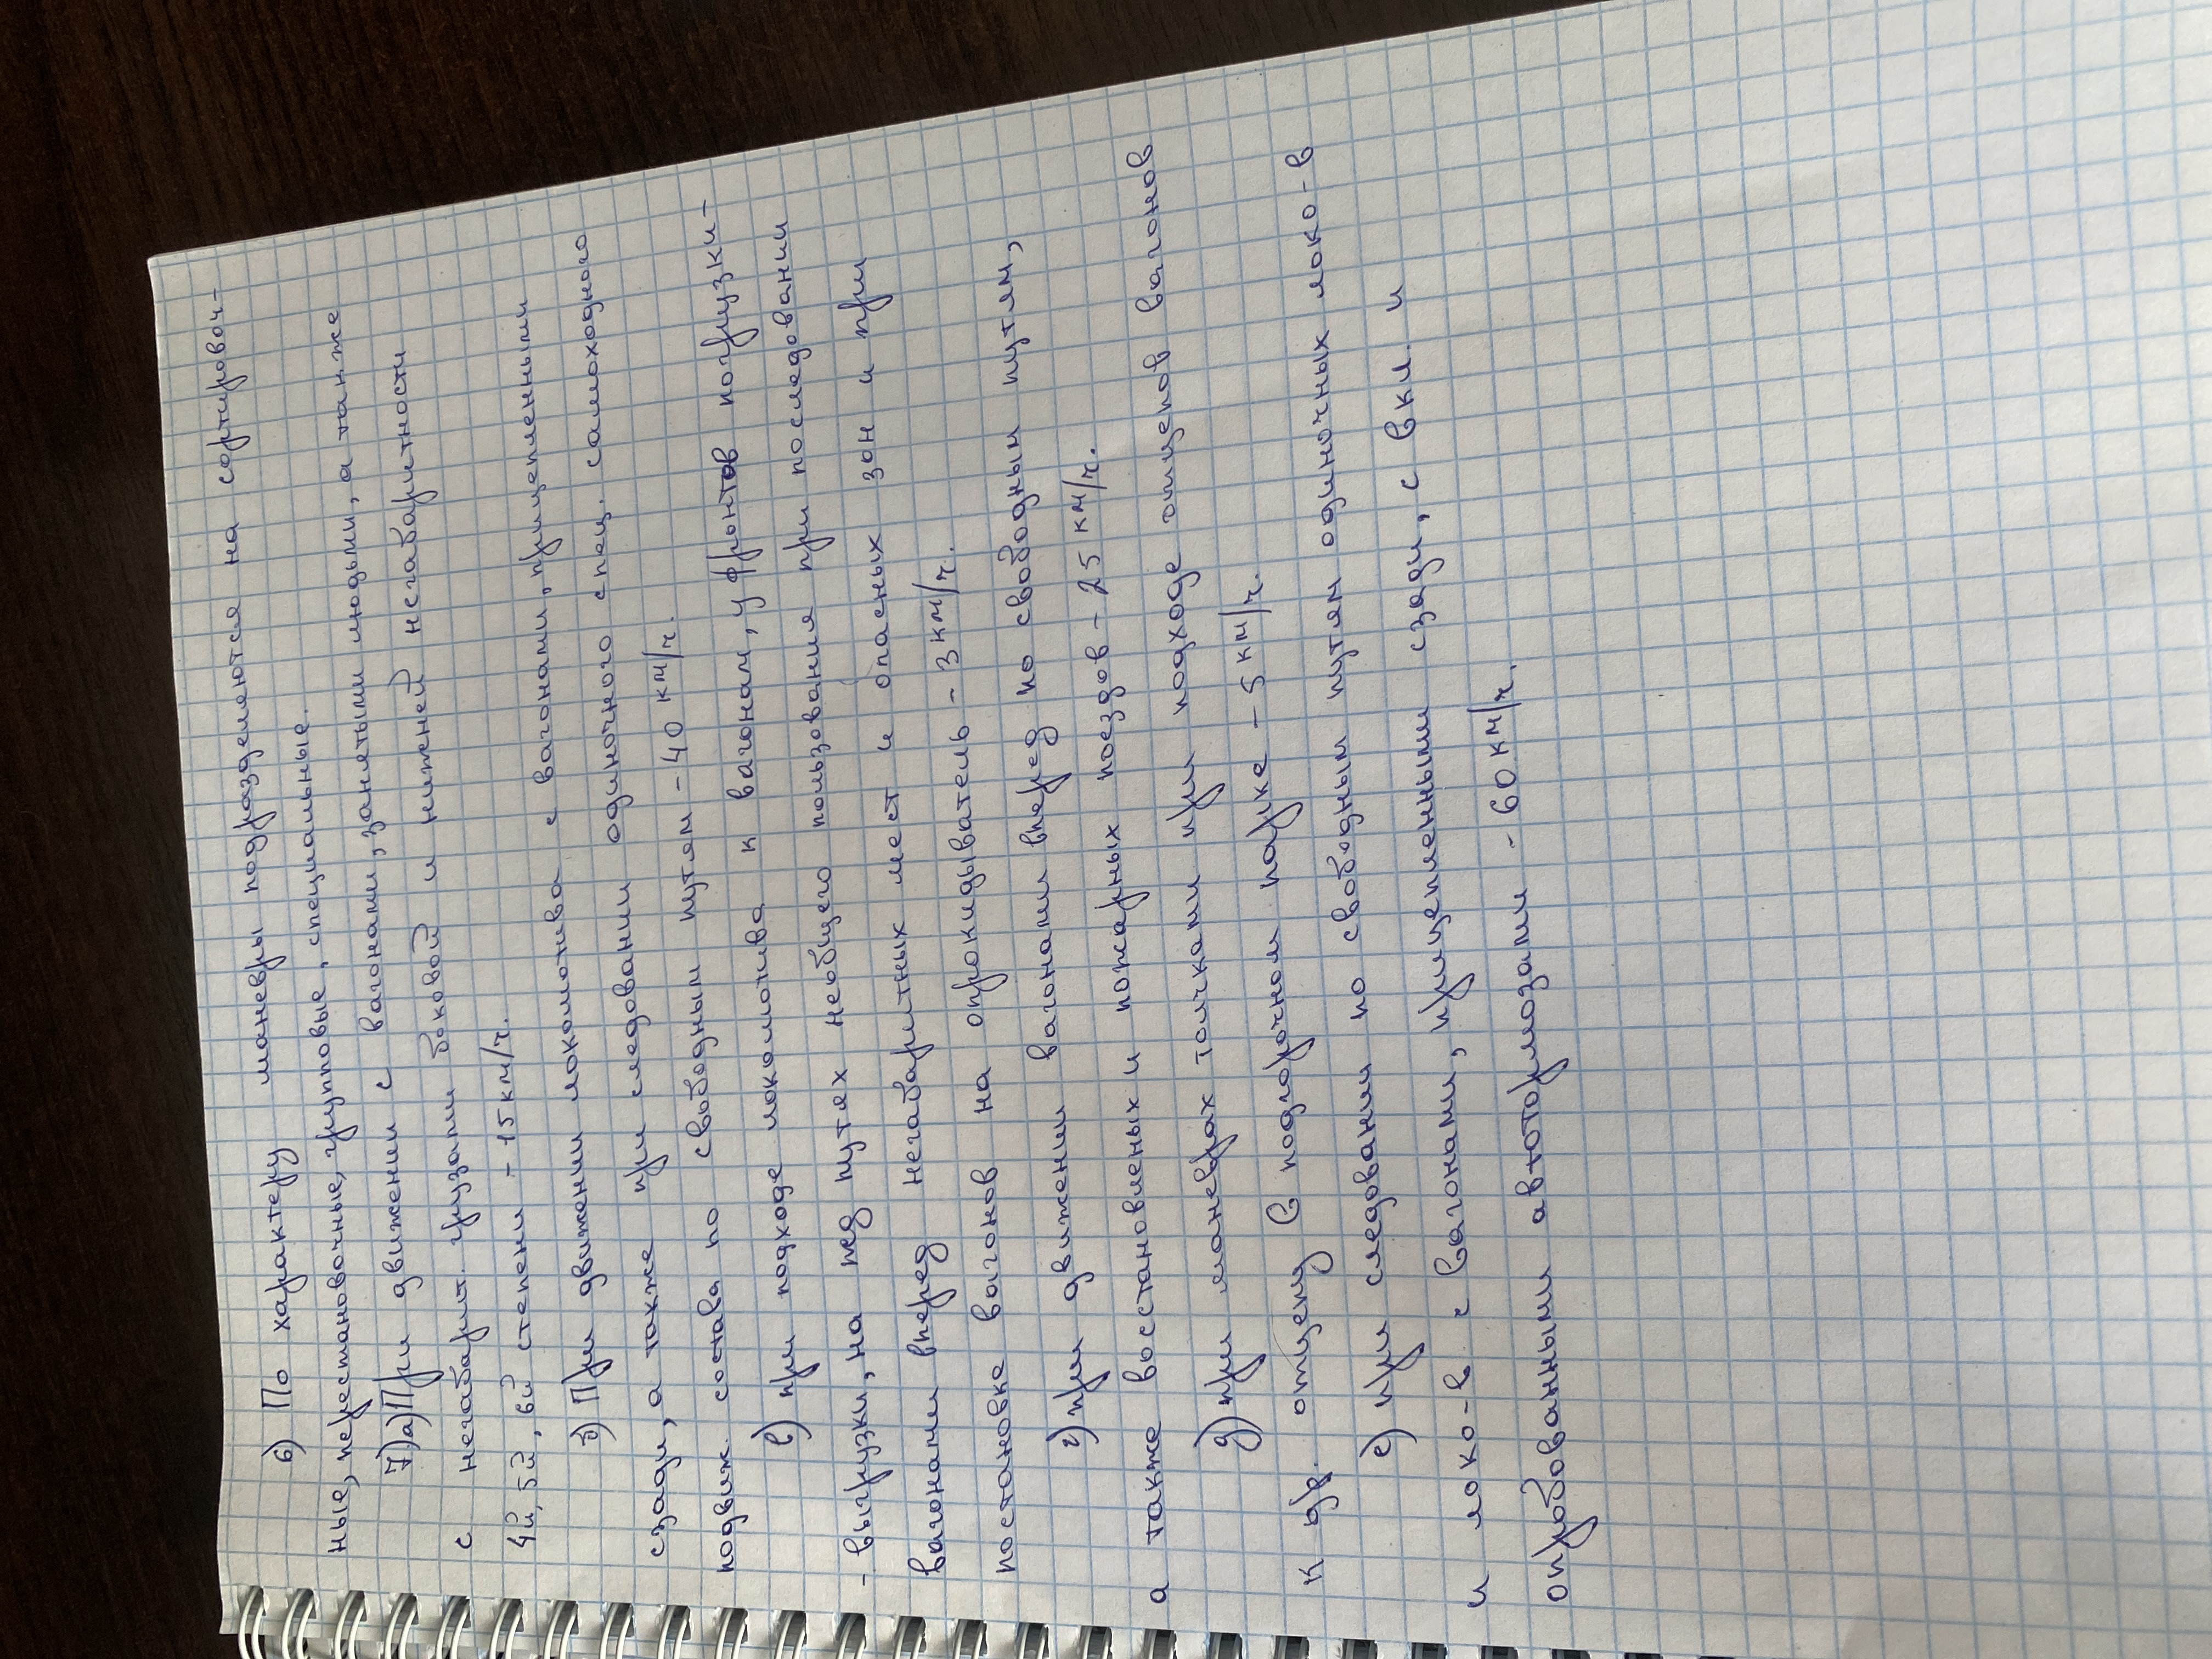 6) По характеру маневры подразделяются на сортировоч-
ные, перестановочные, групповые, специальные.
7)а) При движении с вагонами, занятыми людьми, а также
с негабарит. грузами боковой и нижней негабаритности
4й, 5й, 6й степени - 15 км/ч.
б) При движении локомотива с вагонами, прицепленными
сзади, а также при следовании одиночного спец. самоходного
подвиж. состава по свободным путям - 40 км/ч.
в) при подходе локомотива к вагонам, у фронтов погрузки-
- выгрузки, на жд путях необщего пользования при последовании
вагонами вперед негабаритных мест и опасных зон и при
постановке вагонов на опрокидыватель - 3 км/ч.
г) при движении вагонами вперед по свободным путям,
а также восстановленых и пожарных поездов - 25 км/ч.
д) при маневрах толчками при подходе отцепов вагонов
к др. отцепу в подгорочном парке - 5 км/ч.
е) при следовании по свободным путям одиночных локо-в
и локо-в с вагонами, прицепленными сзади, с вкл. и
опробованными автотормозами - 60 км/ч.